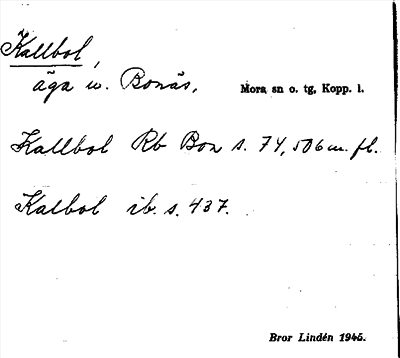 Kallbol,
äga v. Bonäs.
Mora sn o. tg, Kopp. l.
Kallbol Rb Bon s. 74, 506 m. fl.
Kalbol ib. s. 437.
Bror Lindén 1945.